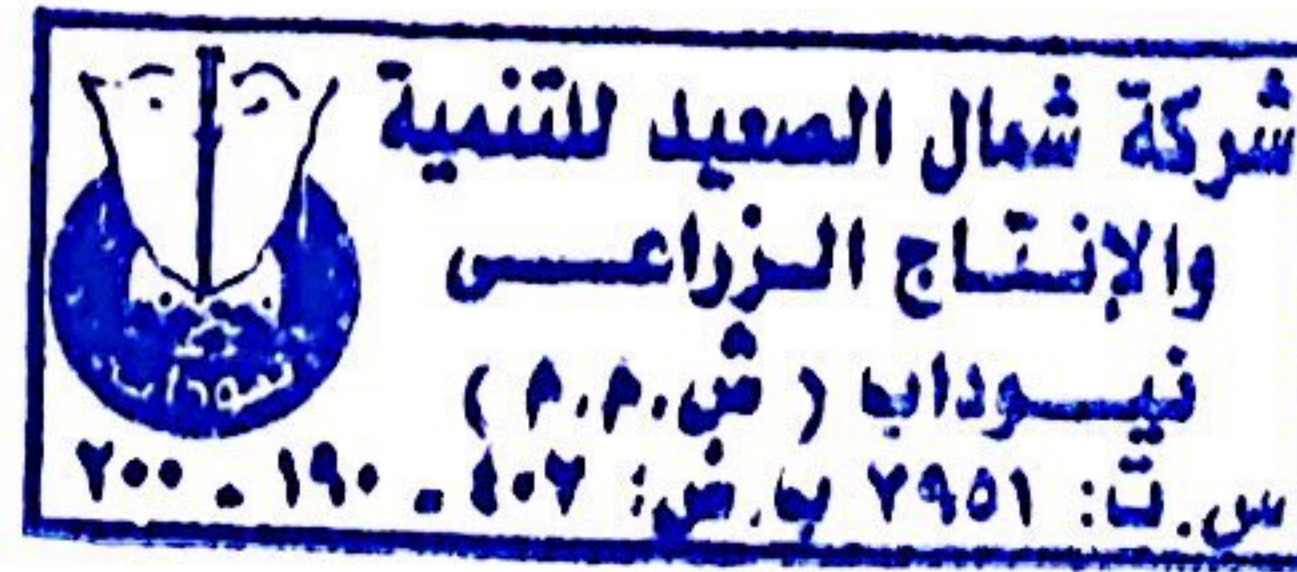 شركة شمال الصعيد للتنمية
والإنتاج الزراعى
نيوداب ( ش.م.م )
س.ت: ٧٩٥١ ب.ض: ٤٠٧ - ١٩٠ - ٢٠٠
نيوداب